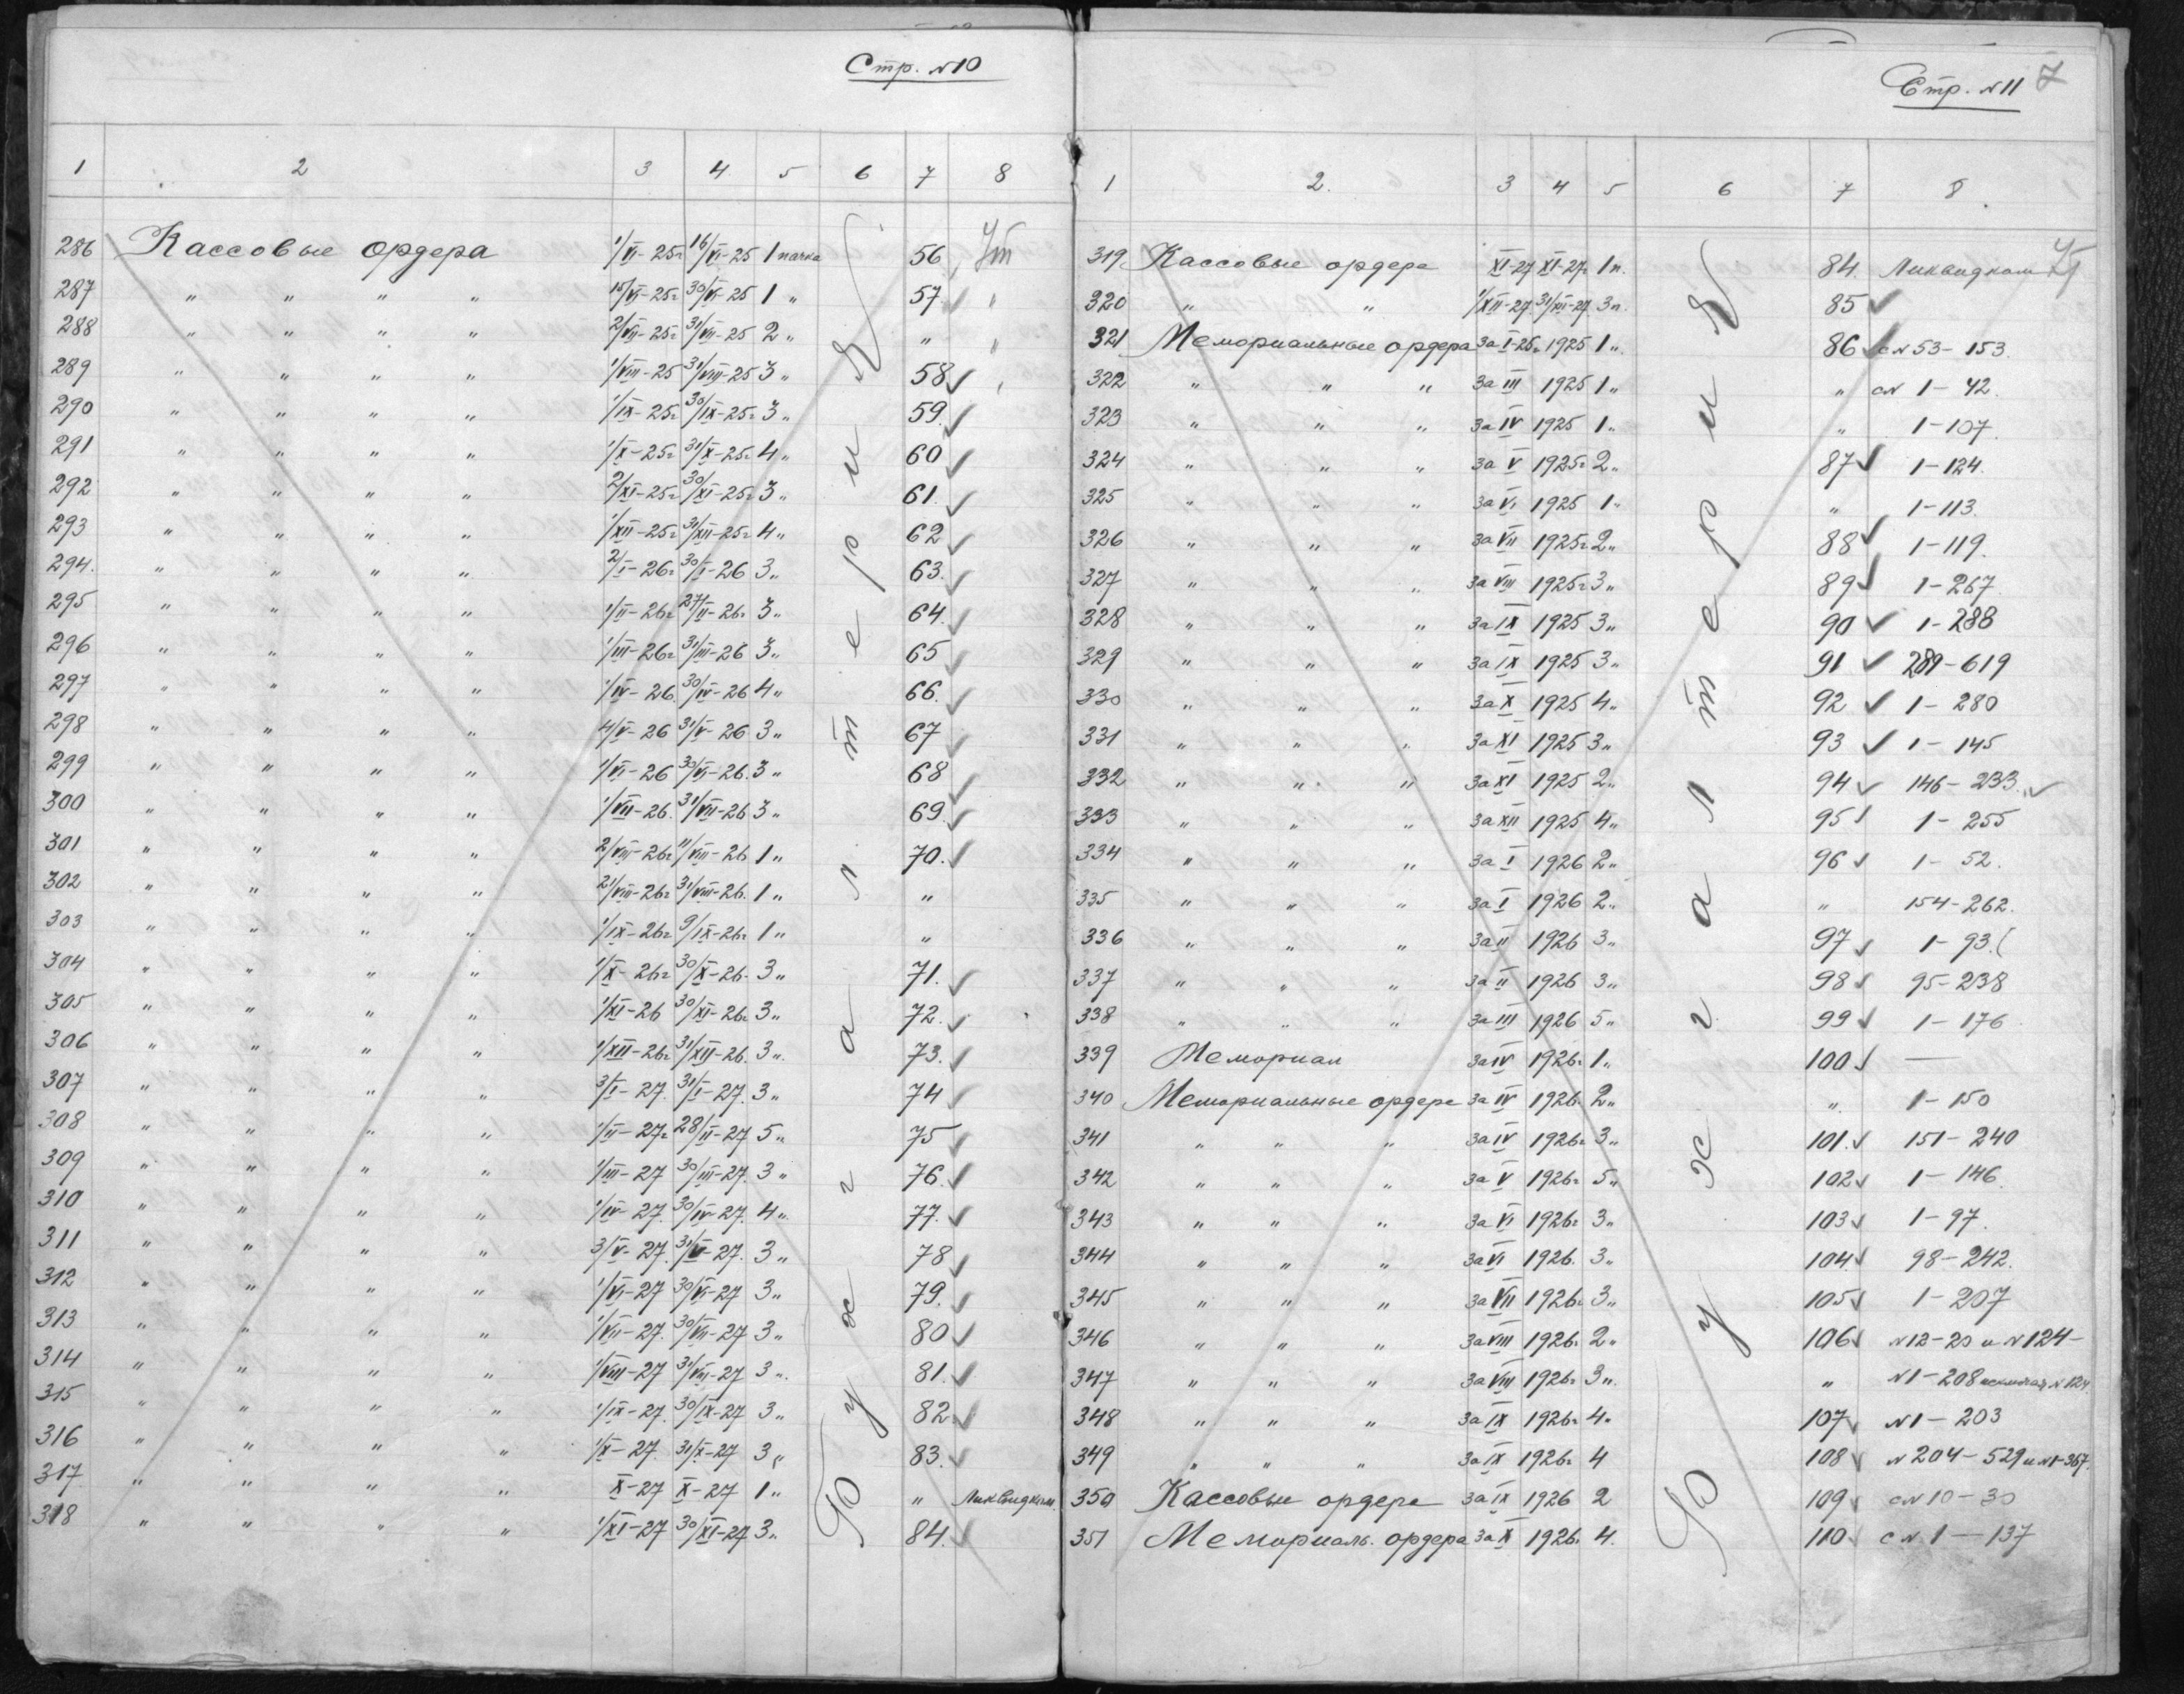 Стр. №10
1 2 3 4 5 6 7 8
Бухгалтерия
286 Кассовые ордера 1/VI-25г 16/VI-25 1 пачка 56
287 " " " " 16/VI-25г 30/VI-25 1 " 57 "
288 " " " " 2/VII-25г 31/VII-25 2 " " "
289 " " " " 1/VIII-25 31/VIII-25 3 " 58 "
290 " " " " 1/IX-25г 30/IX-25г 3 " 59.
291 " " " " 1/X-25г 31/X-25г 4 " 60
292 " " " " 2/XI-25г 30/XI-25г 3 " 61.
293 " " " " 1/XII-25г 31/XII-25г 4 " 62
294. " " " " 2/I-26г 30/I-26 3 " 63.
295 " " " " 1/II-26г 27/II-26г 3 " 64.
296 " " " " 1/III-26г 31/III-26 3 " 65
297 " " " " 1/IV-26. 30/IV-26 4 " 66.
298 " " " " 4/V-26 31/V-26 3 " 67
299 " " " " 1/VI-26 30/VI-26. 3 " 68
300 " " " " 1/VII-26. 31/VII-26 3 " 69.
301 " " " " 2/VIII-26г 11/VIII-26 1 " 70.
302 " " " " 21/VIII-26г 31/VIII-26. 1 " "
303 " " " " 1/IX-26г 9/IX-26г 1 " "
304 " " " " 1/X-26г 30/X-26. 3 " 71.
305 " " " " 1/XI-26 30/XI-26г 3 " 72.
306 " " " " 1/XII-26г 31/XII-26. 3 " 73.
307 " " " " 3/I-27. 31/I-27. 3 " 74
308 " " " " 1/II-27г 28/II-27 5 " 75
309 " " " " 1/III-27 30/III-27. 3 " 76.
310 " " " " 1/IV-27. 30/IV-27. 4 " 77.
311 " " " " 3/V-27. 31/V-27. 3 " 78
312 " " " " 1/VI-27 30/VI-27 3 " 79.
313 " " " " 1/VII-27. 30/VII-27 3 " 80
314 " " " " 1/VIII-27 31/VIII-27 3 " 81.
315 " " " " 1/IX-27. 30/IX-27 3 " 82
316 " " " " 1/X-27. 31/X-27 3 " 83.
317 " " " " X-27 X-27 1 " " Ликвидком.
318 " " " " 1/XI-27 30/XI-27 3 " 84.
Стр. №11 7
1 2. 3 4 5 6 7 8
Бухгалтерия
319 Кассовые ордера XI-27 XI-27г 1 п. 84. Ликвидком
320 " " 1/XII-27. 31/XII-27 3 п. 85
321 Мемориальные ордера За I-25г 1925 1 " 86 с №53-153.
322 " " " За III 1925 1 " " с № 1-42.
323 " " " За IV 1925 1 " " 1-107.
324 " " " За V 1925г 2 " 87 1-124.
325 " " " За VI 1925 1 " " 1-113.
326 " " " За VII 1925г 2 " 88 1-119.
327 " " " За VIII 1925г 3 " 89 1-267.
328 " " " За IX 1925 3 " 90 1-288
329 " " " За IX 1925 3 " 91 289-619
330 " " " За X 1925 4 " 92 1-280
331 " " " За XI 1925 3 " 93 1-145
332 " " " За XI 1925 2 " 94 146-233.
333 " " " За XII 1925 4 " 95 1-255
334 " " " За I 1926 2 " 96 1-52.
335 " " " За I 1926 2 " " 154-262.
336 " " " За II 1926 3 " 97 1-93.
337 " " " За II 1926 3 " 98 95-238
338 " " " За III 1926 5 " 99 1-176
339 Мемориал За IV 1926г 1 " 100 —
340 Мемориальные ордера За IV 1926 2 " " 1-150
341 " " " За IV 1926г 3 " 101. 151-240
342 " " " За V 1926г 5 " 102 1-146.
343 " " " За VI 1926г 3 " 103 1-97.
344 " " " За VI 1926. 3 " 104 98-242.
345 " " " За VII 1926г 3 " 105 1-207
346 " " " За VIII 1926г 2 " 106 №12-20 и №124-
347 " " " За VIII 1926г 3 " " №1-208 исключая №124
348 " " " За IX 1926г 4 " 107 №1-203
349 " " " За IX 1926г 4 108 №204-529 и №1-367.
350 Кассовые ордера За IX 1926 2 109 с №10-30
351 Мемориаль. ордера За X 1926г 4. 110 с №1-137